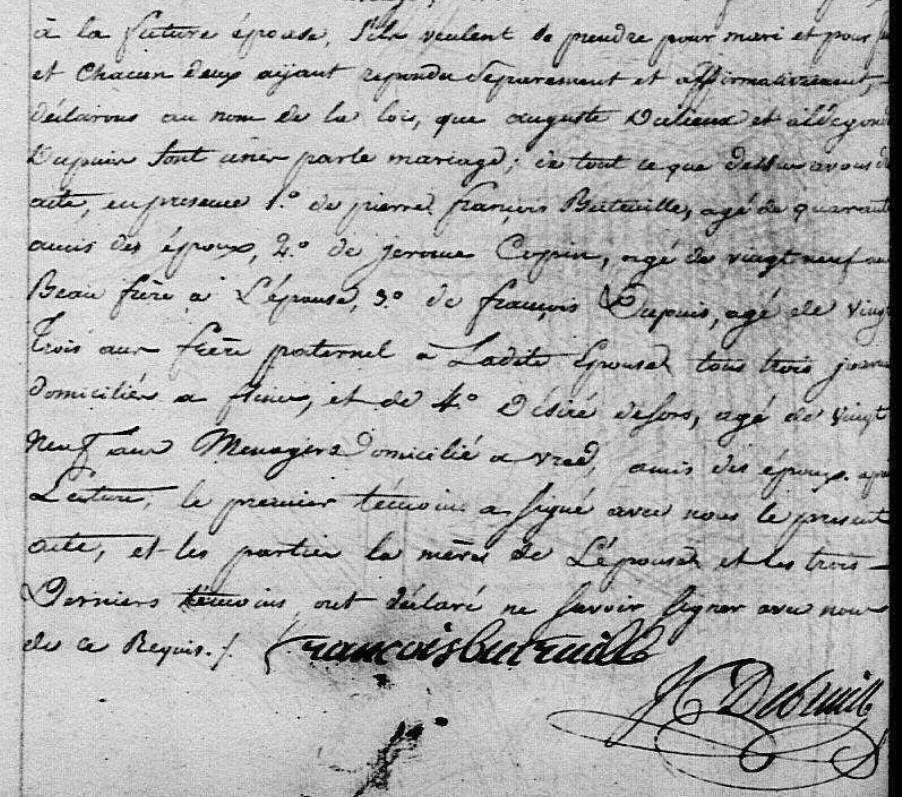 à la future épouse, S'ils veulent se prendre pour mari et pour
et Chacun deux ayant repondu Séparement et affirmativement,
déclarons au nom de la loi, que auguste Dulieux et aldegonde
Dupuis sont unis par le mariage; de tout ce que dessus avons
acte, en presence 1.° de pierre françois Buteuille, agé de quarante
amis des époux, 2.° de jerome Copin, agé de vingt neuf ans
Beau frère a L'épouse, 3.° de françois Dupuis, agé de vingt
Trois ans frère paternel a Ladite Epouse tous trois
domiciliés a flines, et de 4.° Désiré defors, agé de vingt
neuf ans Menager Domicilié a vred, amis des époux. après
Lecture, le premier témoins a signé avec nous le present
acte, et les parties la mère de L'épouse et les trois –
Derniers témoins ont déclaré ne savoir signer avec nous
de ce Requis. /. françois buteuille